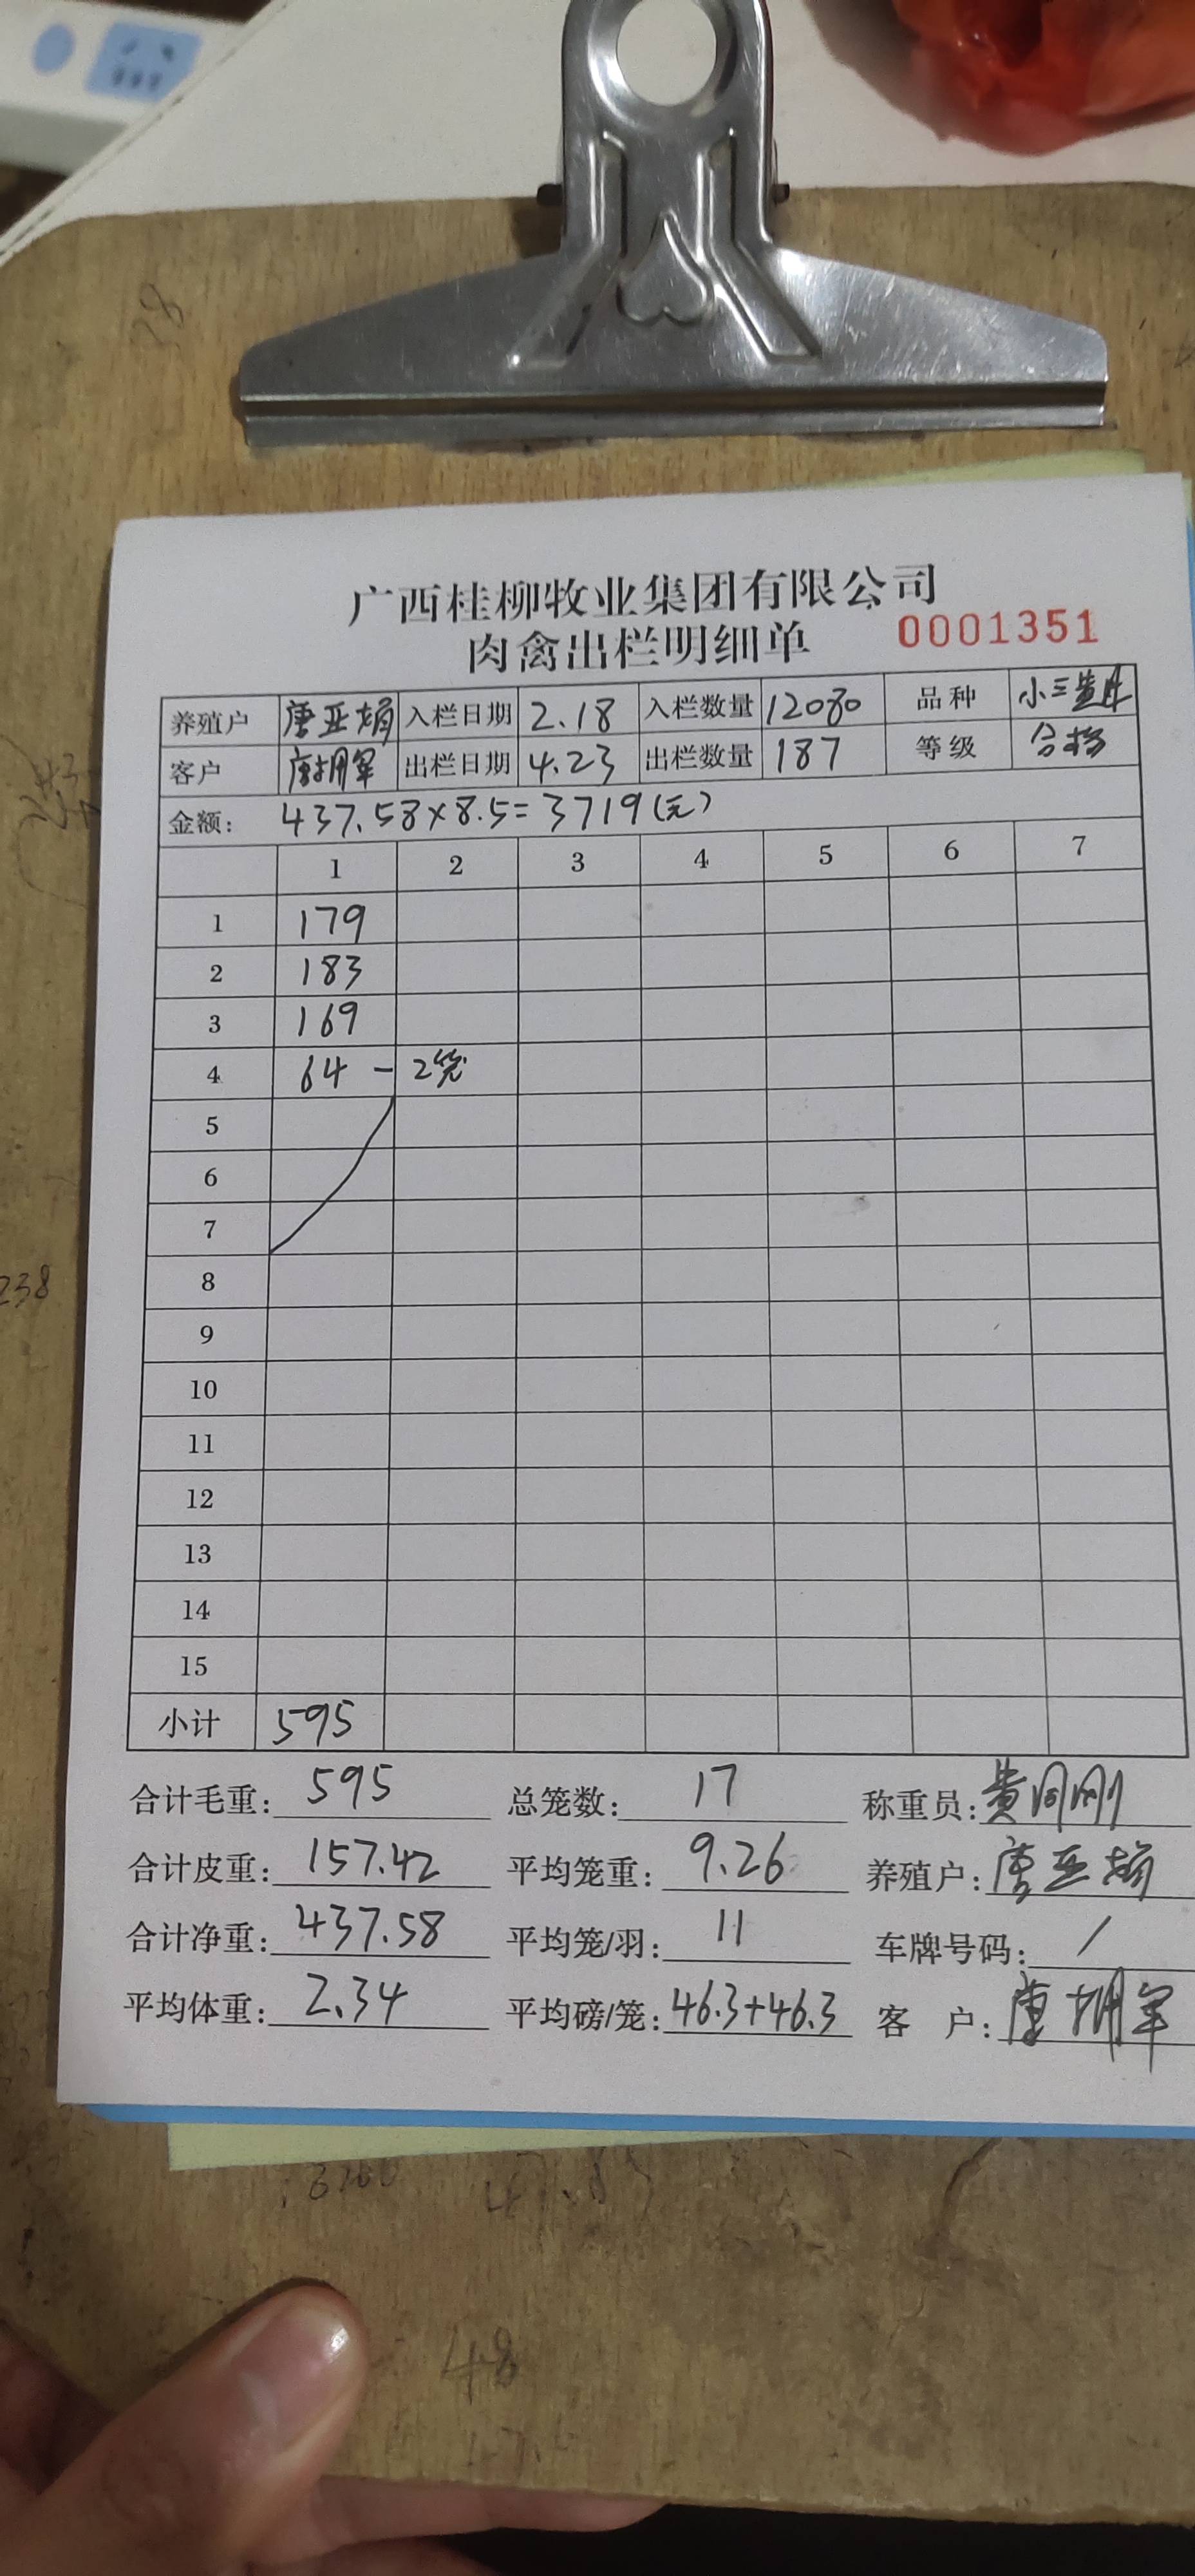 广西桂柳牧业集团有限公司
肉禽出栏明细单 0001351
养殖户 唐亚娟 入栏日期 2.18 入栏数量 12080 品种 小三黄
客户 唐翔军 出栏日期 4.23 出栏数量 187 等级 合格
金额: 437.58×8.5=3719(元)
1 2 3 4 5 6 7
1 179
2 183
3 169
4 64 - 2笼
5
6
7
8
9
10
11
12
13
14
15
小计 595
合计毛重: 595 总笼数: 17 称重员: 黄
合计皮重: 157.42 平均笼重: 9.26 养殖户: 唐亚娟
合计净重: 437.58 平均笼/羽: 11 车牌号码: /
平均体重: 2.34 平均磅/笼: 46.3+46.3 客 户: 唐翔军
238
28
48